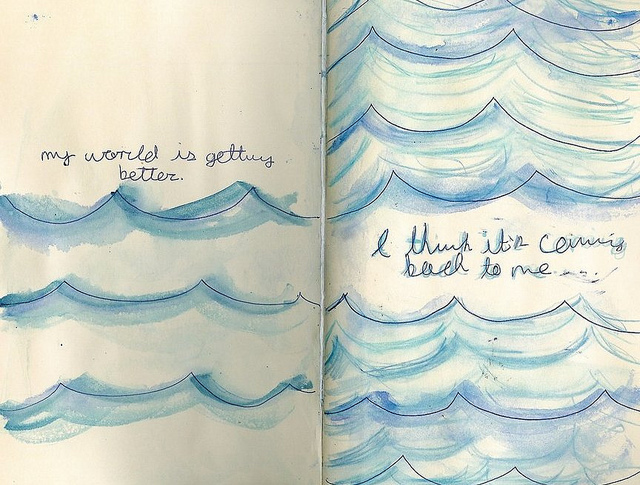 my world is getting
better.
I think it's coming
back to me....